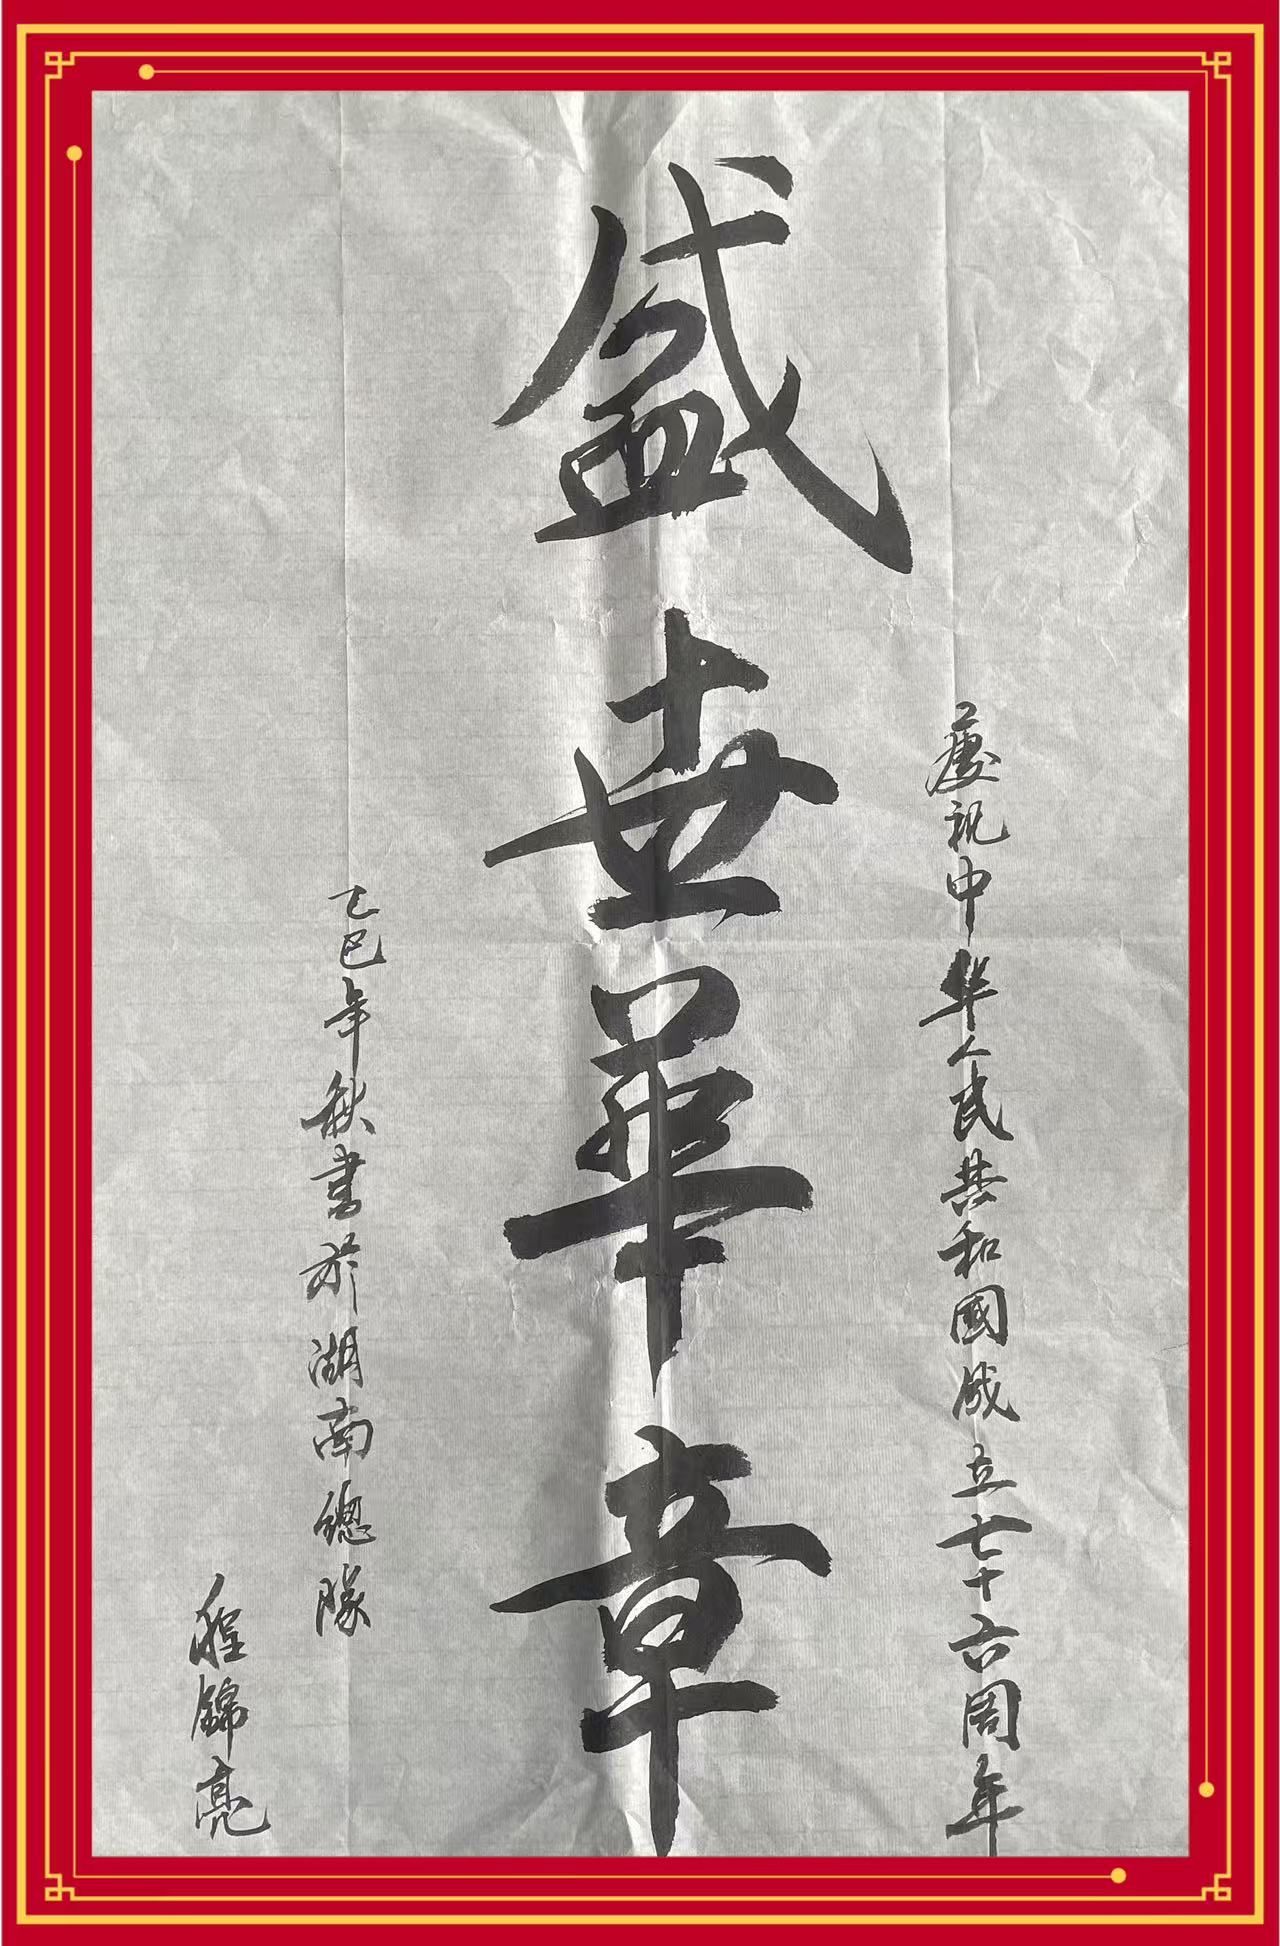 慶祝中华人民共和國成立七十六周年
盛世華章
乙巳年秋書於湖南總隊
程錦亮